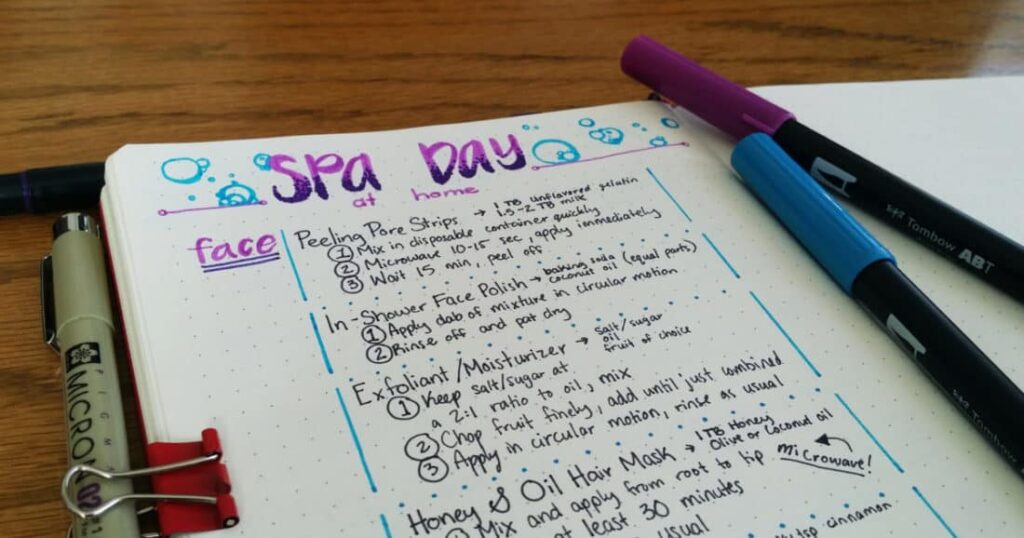 SPA DAY
at home
face
Peeling Pore Strips → 1 TB unflavored gelatin
1.5-2 TB milk
① Mix in disposable container quickly
② Microwave 10-15 sec, apply immediately
③ Wait 15 min, peel off
In-Shower Face Polish → baking soda
coconut oil (equal parts)
① Apply dab of mixture in circular motion
② Rinse off and pat dry
Exfoliant/Moisturizer → salt/sugar
oil
fruit of choice
① Keep salt/sugar at
a 2:1 ratio to oil, mix
② Chop fruit finely, add until just combined
③ Apply in circular motion, rinse as usual
Honey & Oil Hair Mask → 1 TB Honey
Olive or Coconut oil
microwave!
① Mix and apply from root to tip
at least 30 minutes
usual
cinnamon
MICRON
02
Tombow ABT